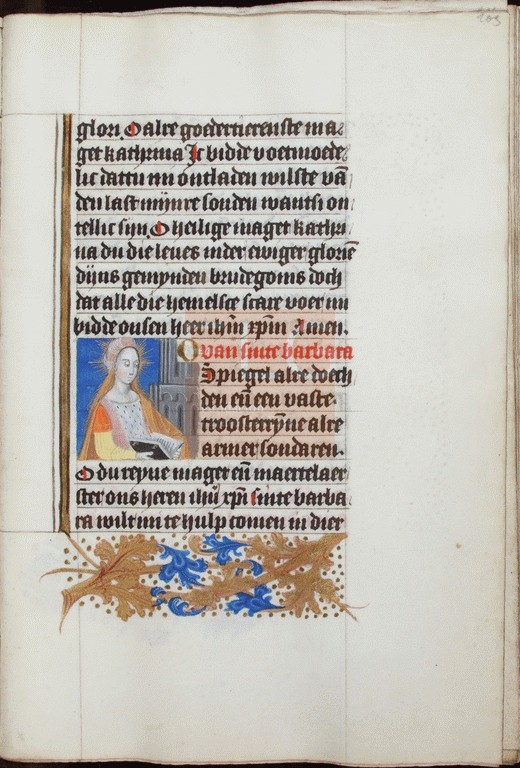 103
glori. O alre goedertierenste ma⸗
get kathrina Ic bidde voetmoede⸗
lic dattu mi ontladen wilste vā
den last mijnre sonden wantsi on
tellic sijn. O heilige maget kathri
na du die leues inder ewiger gloriē
dijns gemynden brudegoms doch
dat alle die hemelsce scare voer mi
bidde onsen heer ihm̄ xpm̄ Amen.
O van sinte barbara
Spiegel alre doech
den eñ een vaste
troosterȳne alre
armer sondaren.
O du reyne maget eñ maertelaer
ster ons heren ihū xpī sinte barba
ra wilt mi te hulp comen in dier